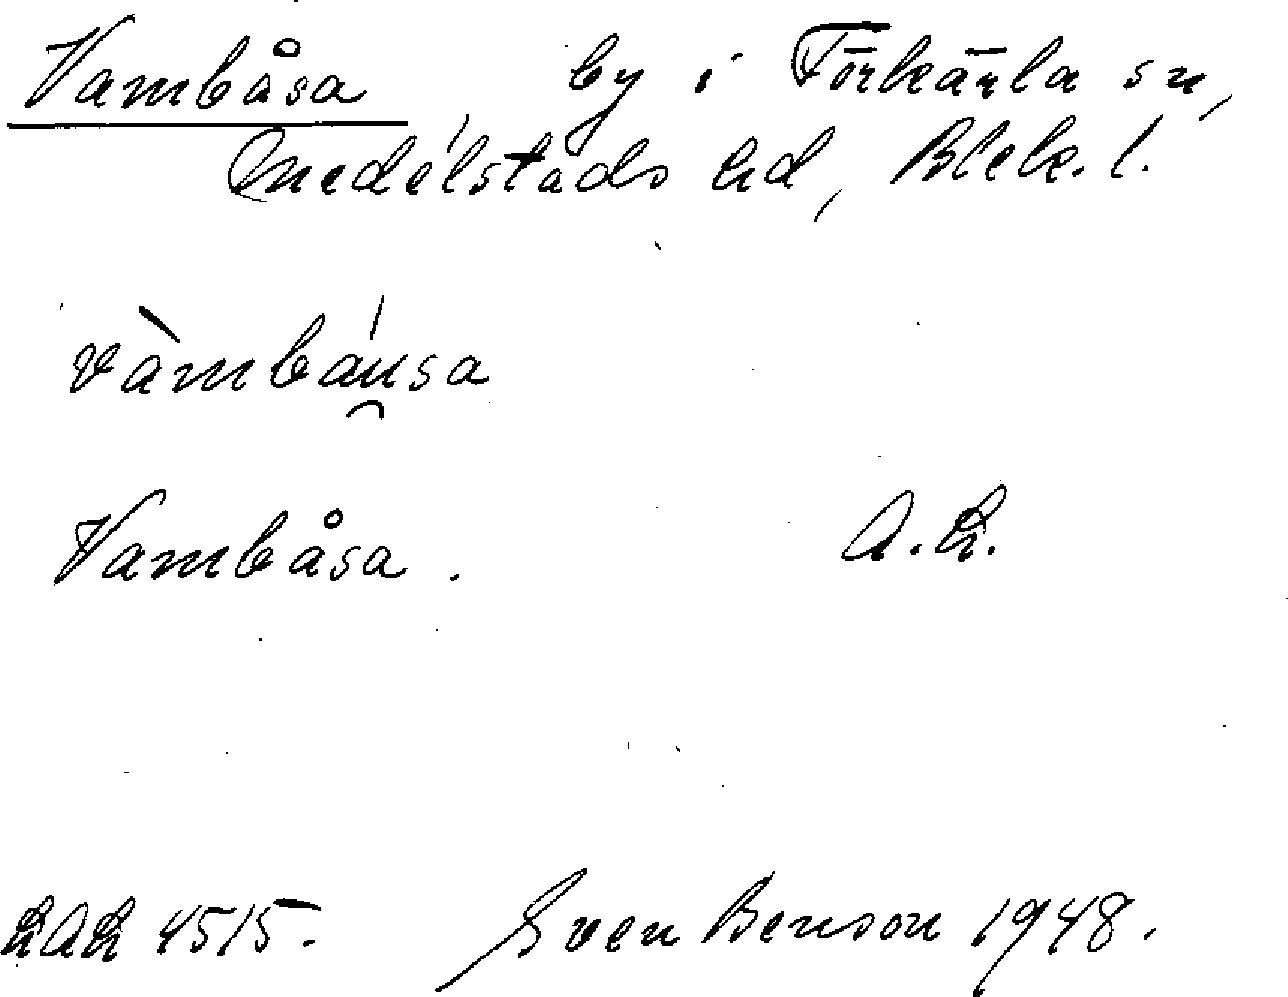 Vambåsa by i Förkärla sn,
Medelstads hd, Blek. l.
vàmbáu̯sa
Vambåsa. A.L.
LAL 4515. Sven Benson 1948.